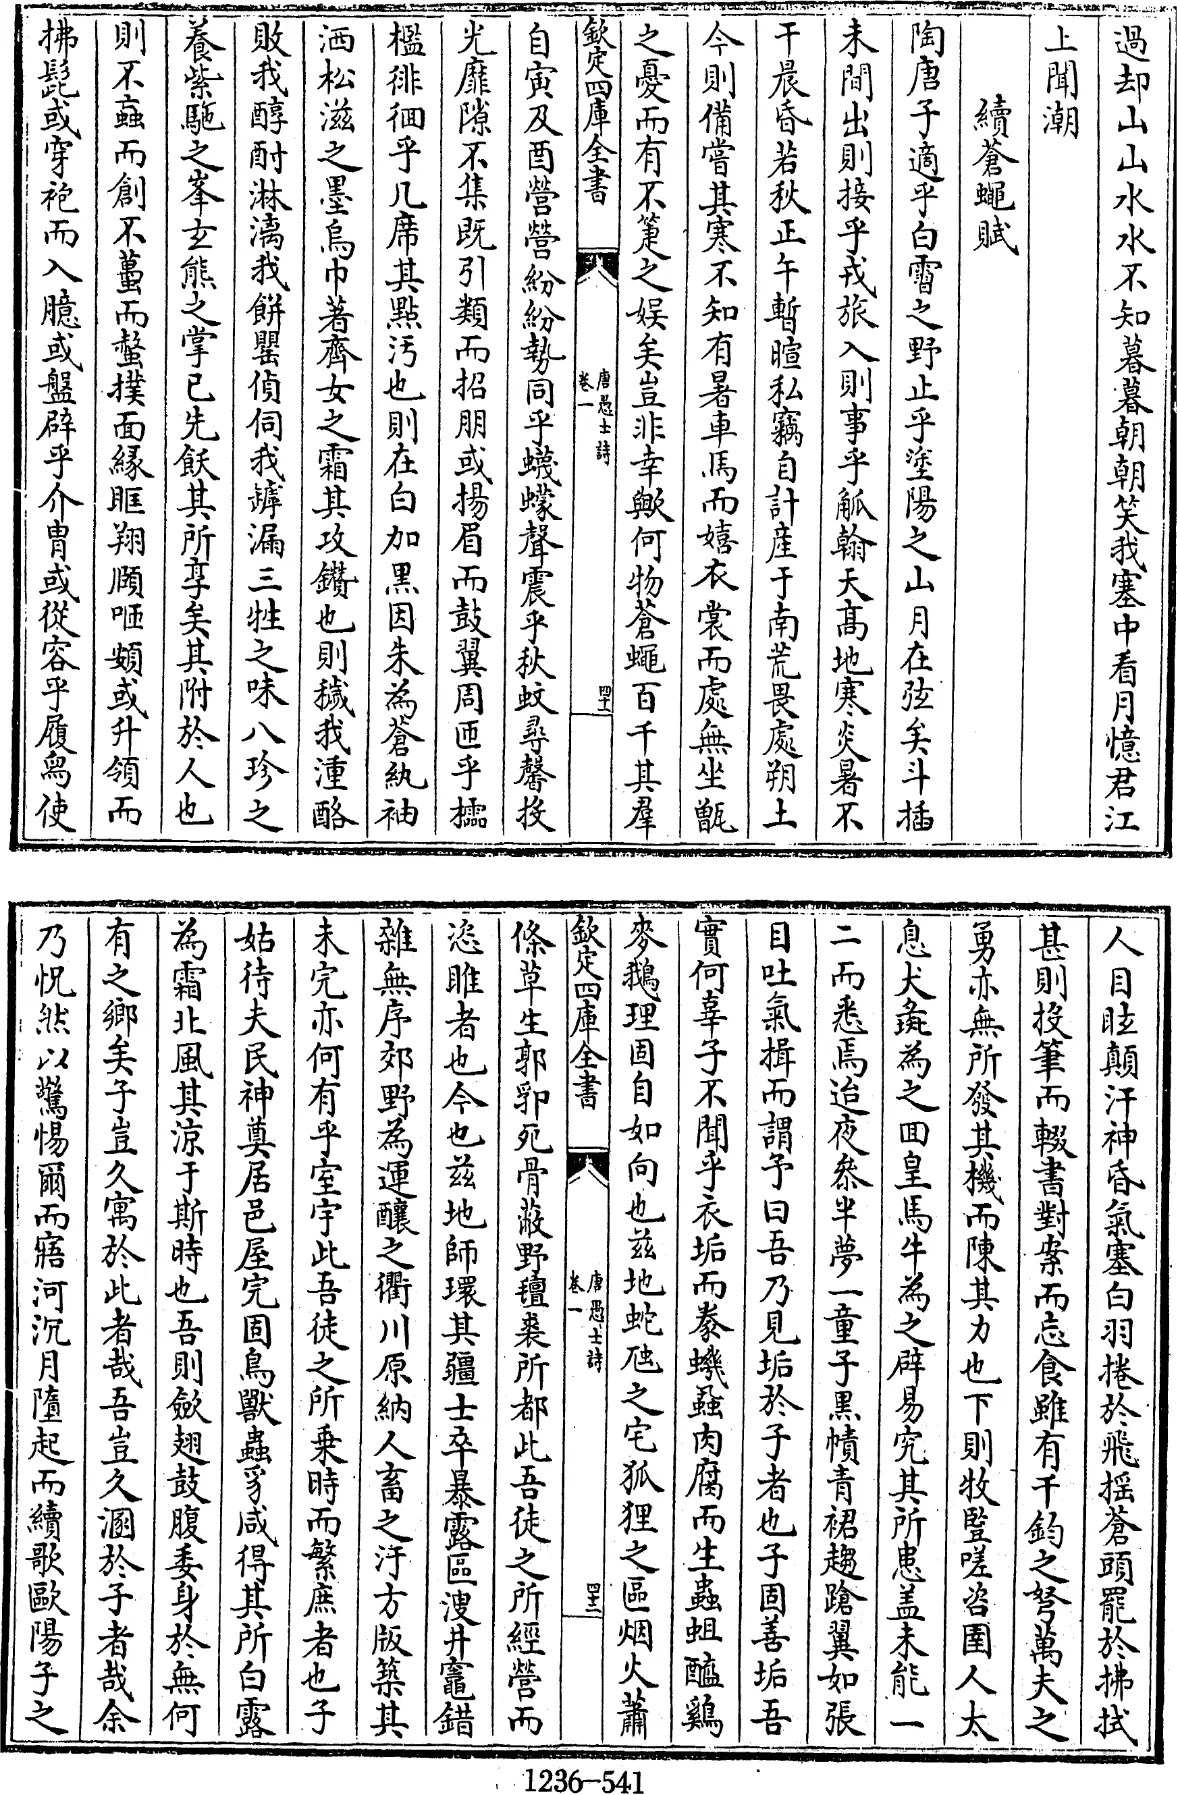 過却山山水水不知暮暮朝朝笑我塞中看月憶君江
上聞潮
續蒼蠅賦
陶唐子適乎白霫之野止乎塗陽之山月在弦矣斗插
未間出則接乎戎旅入則事乎觚翰天高地寒炎暑不
干晨昏若秋正午暫暄私竊自計産于南荒畏處朔土
今則備嘗其寒不知有暑車馬而嬉衣裳而處無坐甑
之憂而有不箑之娱矣豈非幸歟何物蒼蠅百千其羣
欽定四庫全書
唐愚士詩
卷一
四十一
自寅及酉營營紛紛勢同乎蠛蠓聲震乎秋蚊尋馨投
光靡隙不集既引類而招朋或揚眉而鼓翼周匝乎櫺
檻徘徊乎几席其點汚也則在白加黑因朱為蒼紈袖
洒松滋之墨烏巾著齊女之霜其攻鑽也則穢我湩酪
敗我醇酎淋漓我餅罌偵伺我罅漏三牲之味八珍之
養紫駞之峯玄熊之掌已先飫其所享矣其附於人也
則不蝱而創不蠆而螫撲面緣眶翔頤咂頰或升領而
拂髭或穿袍而入臆或盤辟乎介胄或從容乎履舄使
人目眩顛汗神昏氣塞白羽捲於飛揺蒼頭罷於拂拭
甚則投筆而輟書對案而忘食雖有千鈞之弩萬夫之
勇亦無所發其機而陳其力也下則牧豎嗟咨圉人太
息犬彘為之回皇馬牛為之辟易究其所患盖未能一
二而悉焉迨夜叅半夢一童子黑幘青裙趨蹌翼如張
目吐氣揖而謂予曰吾乃見垢於子者也子固善垢吾
實何辜子不聞乎衣垢而豢蟣蝨肉腐而生蟲蛆醯鷄
麥鵝理固自如向也兹地蛇虺之宅狐狸之區烟火蕭
欽定四庫全書
唐愚士詩
卷一
四十二
條草生郭郛死骨蔽野氊裘所都此吾徒之所經營而
恣睢者也今也兹地師環其疆士卒暴露區溲井竈錯
雜無序郊野為運釀之衢川原納人畜之汙方版築其
未完亦何有乎室宇此吾徒之所乗時而繁庶者也子
姑待夫民神奠居邑屋完固鳥獸蟲豸咸得其所白露
為霜北風其涼于斯時也吾則斂翅鼓腹委身於無何
有之鄉矣子豈久寓於此者哉吾豈久溷於子者哉余
乃怳然以驚惕爾而寤河沉月墮起而續歌歐陽子之
1236-541